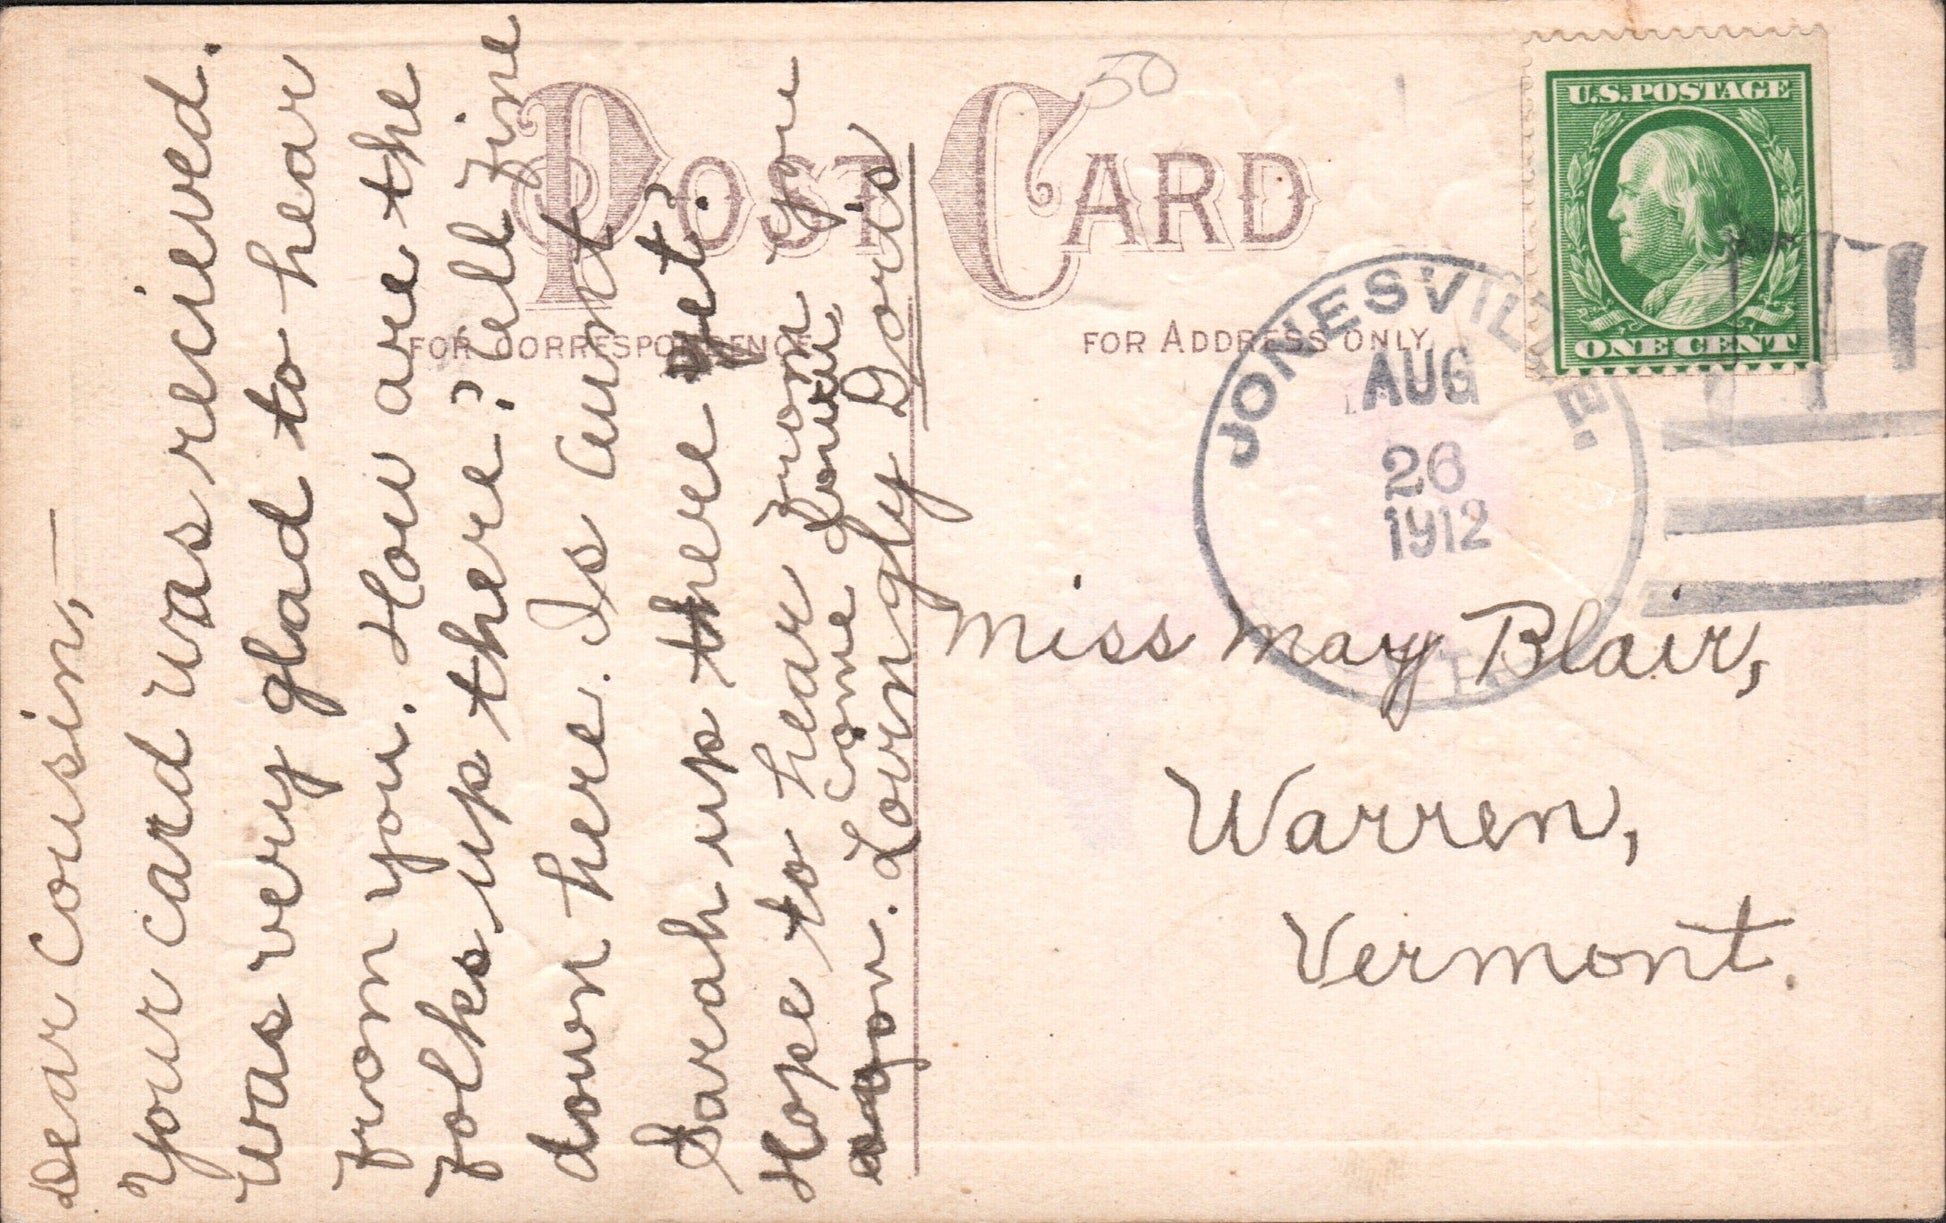 Dear Cousin,—
Your card was recieved.
Was very glad to hear
from you. How are the
folks up there? all fine
down here. Is aunt
Sarah up there yet?
Hope to hear from you
come
Lovingly Doris
POST CARD
50
FOR CORRESPONDENCE
FOR ADDRESS ONLY
U.S. POSTAGE
ONE CENT
JONESVILLE.
AUG
26
1912
Miss May Blair,
Warren,
Vermont.